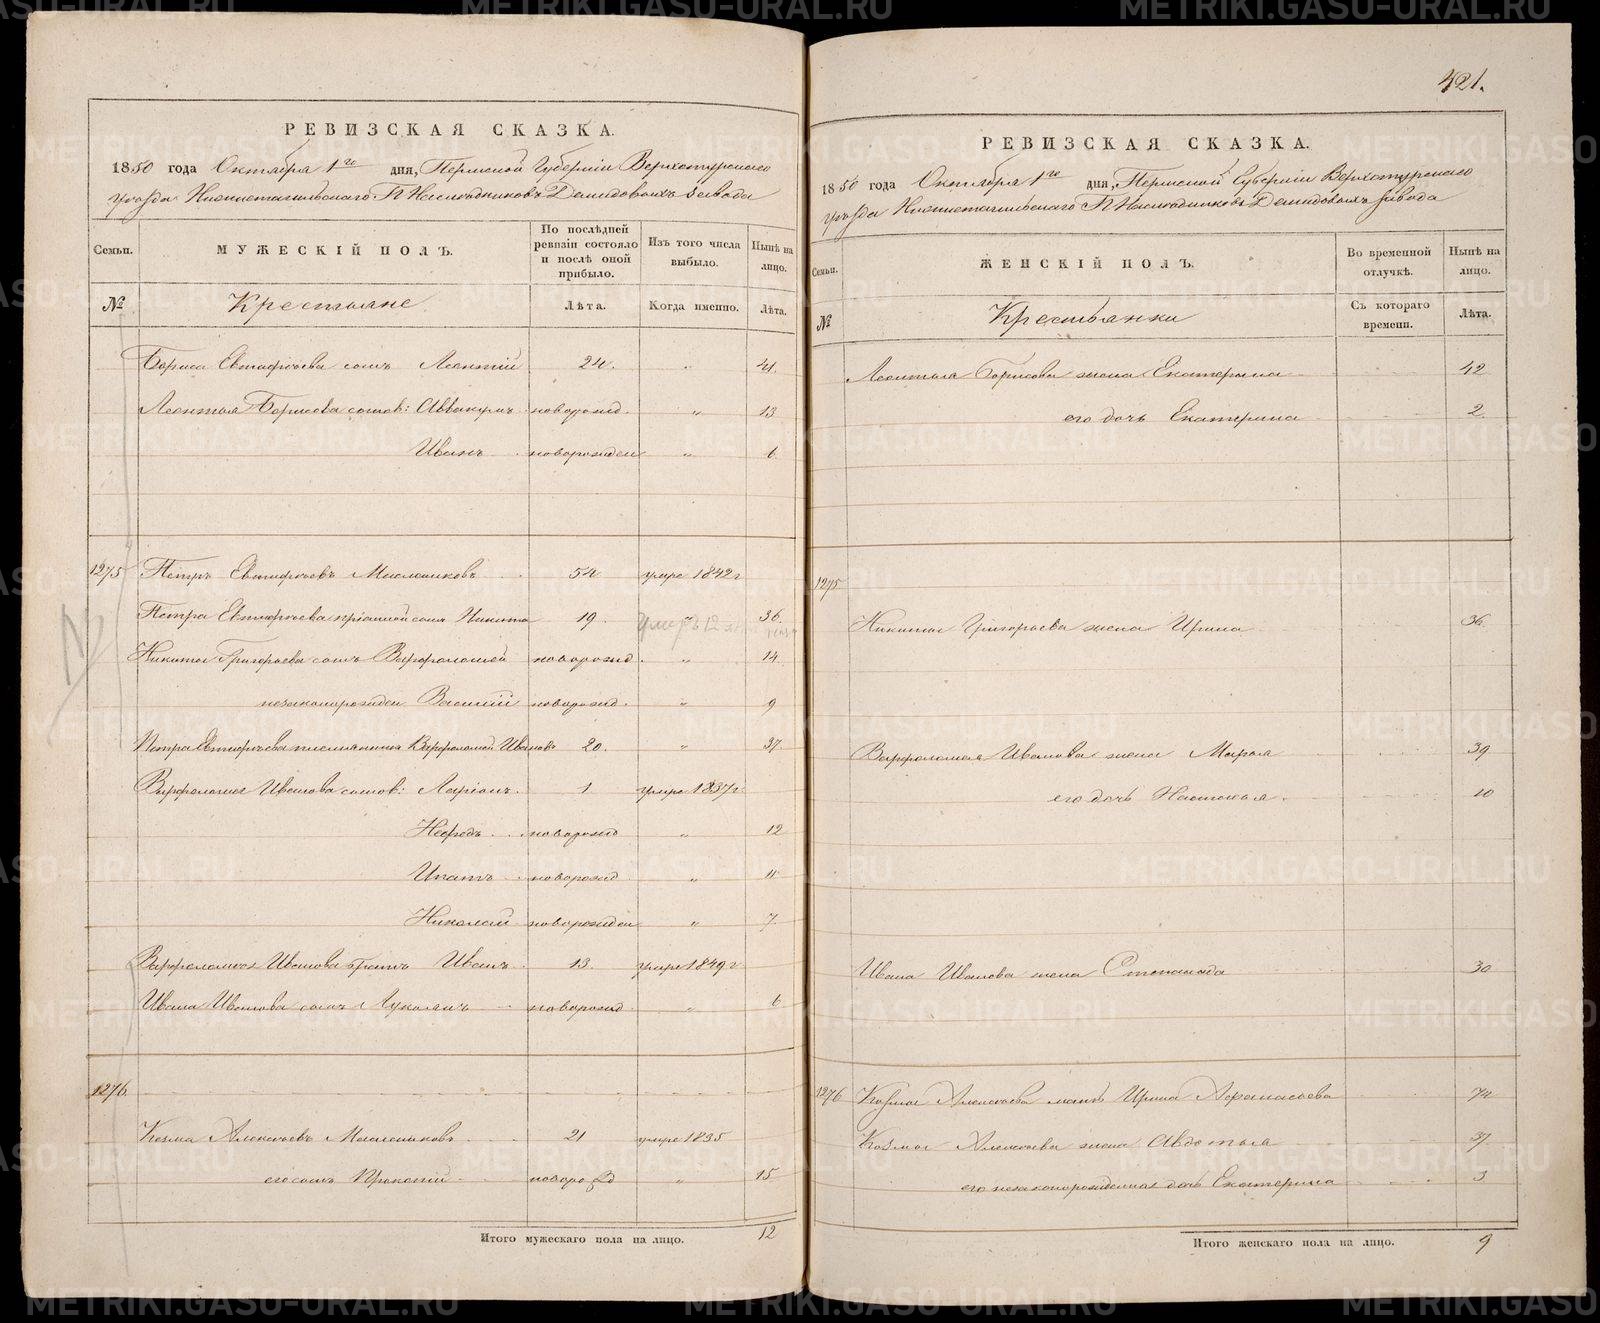 РЕВИЗСКАЯ СКАЗКА.
1850 года Октября 1го дня, Пермской Губернiи Верхотурского
уѣзда Нижнетагильского Г.г. Наслѣдниковъ Демидовыхъ завода
Семьи. МУЖЕСКIЙ ПОЛЪ. По послѣдней ревизiи состояло и послѣ оной прибыло. Изъ того числа выбыло. Нынѣ на лицо.
№ Крестьяне Лѣта. Когда именно. Лѣта.
Бориса Евтифѣева сынъ Леонтiй 24. " 41.
Леонтья Борисова сынов: Аввакумъ новорожд. " 13
Иванъ новорожден " 6
1275 Петръ Евтифѣевъ Масленниковъ 54 умре 1842 г
Петра Евтифѣева прiемной сынъ Никита 19. " 36.
умеръ 12
Никиты Григорьева сынъ Варфоломей новорожд " 14
незаконорожден Василiй новорожд. " 9
Петра Евтифѣева племянникъ Варфоломей Ивановъ 20. " 37
Варфоломея Иванова сынов: Ларiонъ 1 умре 1837 г
Нефедъ новорожд " 12
Ипатъ новорожд " 11
Николай новорожден " 7
Варфоломея Иванова братъ Иванъ 13. умре 1849 г
Ивана Иванова сынъ Лукоянъ новорожд " 6
1276.
Козма Алексѣевъ Масленниковъ 21 умре 1835
его сынъ Прокопiй новорожд " 15
Итого мужескаго пола на лицо. 12
421.
РЕВИЗСКАЯ СКАЗКА.
1850 года Октября 1го дня, Пермской Губернiи Верхотурского
уѣзда Нижнетагильского Г.г. Наслѣдниковъ Демидовыхъ завода
Семьи. ЖЕНСКIЙ ПОЛЪ. Во временной отлучкѣ. Нынѣ на лицо.
№ Крестьянки Съ котораго времени. Лѣта.
Леонтья Борисова жена Екатерина 42
его дочь Екатерина 2.
1275
Никиты Григорьева жена Ирина 36.
Варфоломея Иванова жена Марья 39
его дочь Настасья 10
Ивана Иванова жена Степанида 30
1276 Козмы Алексѣева мать Ирина Афанасьева 74
Козмы Алексѣева жена Авдотья 37
его незаконорожденная дочь Екатерина 3
Итого женскаго пола на лицо. 9
METRIKI.GASO-URAL.RU